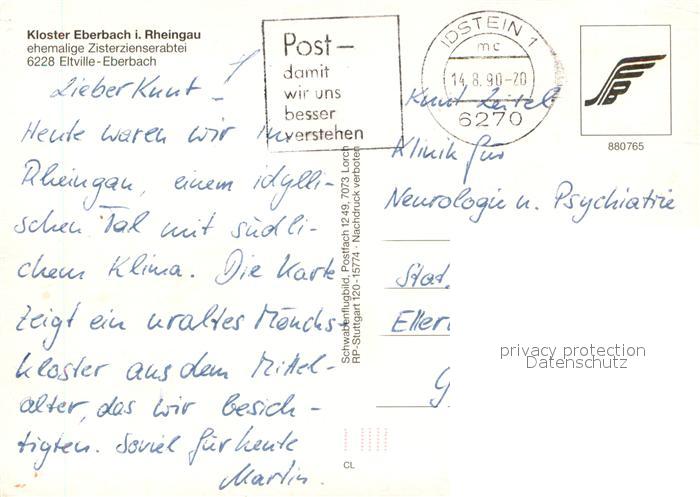 Kloster Eberbach i. Rheingau
ehemalige Zisterzienserabtei
6228 Eltville-Eberbach
Lieber Knut!
Heute waren wir im
Rheingau, einem idylli-
schen Tal mit südli-
chem Klima. Die Karte
zeigt ein uraltes Mönchs-
kloster aus dem Mittel-
alter, das wir besich-
tigten. Soviel für heute
Martin.
Post-
damit
wir uns
besser
verstehen
IDSTEIN 1
mc
14.8.90-20
6270
880765
Schwabenflugbild, Postfach 1249, 7073 Lorch
RP-Stuttgart 120-15774 · Nachdruck verboten
CL
Knut Zeitel
Klinik für
Neurologie u. Psychiatrie
Stat.
Eller
G
privacy protection
Datenschutz